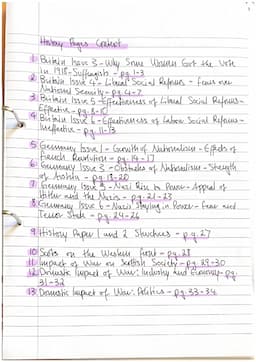 History Pages Content
1 Britain Issue 3 - Why Some Women Got the Vote
in 1918 - Suffragists - pg. 1-3
2 Britain Issue 4 - Liberal Social Reforms - Fears over
National Security - pg. 4-7
3 Britain Issue 5 - Effectiveness of Liberal Social Reforms -
Effective - pg. 8-10
4 Britain Issue 6 - Effectiveness of Labour Social Reforms -
Ineffective - pg. 11-13
5 Germany Issue 1 - Growth of Nationalism - Effects of
French Revolution - pg. 14-17
6 Germany Issue 3 - Obstacles of Nationalism - Strength
of Austria - pg. 18-20
7 Germany Issue 5 - Nazi Rise to Power - Appeal of
Hitler and the Nazis - pg. 21-23
8 Germany Issue 6 - Nazis Staying in Power - Fear and
Terror State - pg. 24-26
9 History Paper 1 and 2 Structures - pg. 27
10 Scots on the Western Front - pg. 28
11 Impact of War on Scottish Society - pg. 29-30
12 Domestic Impact of War: Industry and Economy - pg.
31-32
13 Domestic Impact of War: Politics - pg. 33-34